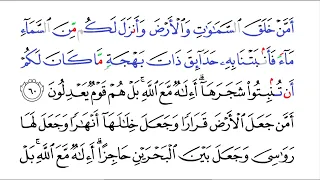 أَمَّنْ خَلَقَ ٱلسَّمَٰوَٰتِ وَٱلْأَرْضَ وَأَنزَلَ لَكُم مِّنَ ٱلسَّمَآءِ
مَآءً فَأَنۢبَتْنَا بِهِۦ حَدَآئِقَ ذَاتَ بَهْجَةٍ مَّا كَانَ لَكُمْ
أَن تُنۢبِتُوا۟ شَجَرَهَآ ۗ أَءِلَٰهٌ مَّعَ ٱللَّهِ ۚ بَلْ هُمْ قَوْمٌ يَعْدِلُونَ ٦٠
أَمَّن جَعَلَ ٱلْأَرْضَ قَرَارًا وَجَعَلَ خِلَٰلَهَآ أَنْهَٰرًا وَجَعَلَ لَهَا
رَوَٰسِىَ وَجَعَلَ بَيْنَ ٱلْبَحْرَيْنِ حَاجِزًا ۗ أَءِلَٰهٌ مَّعَ ٱللَّهِ ۚ بَلْ